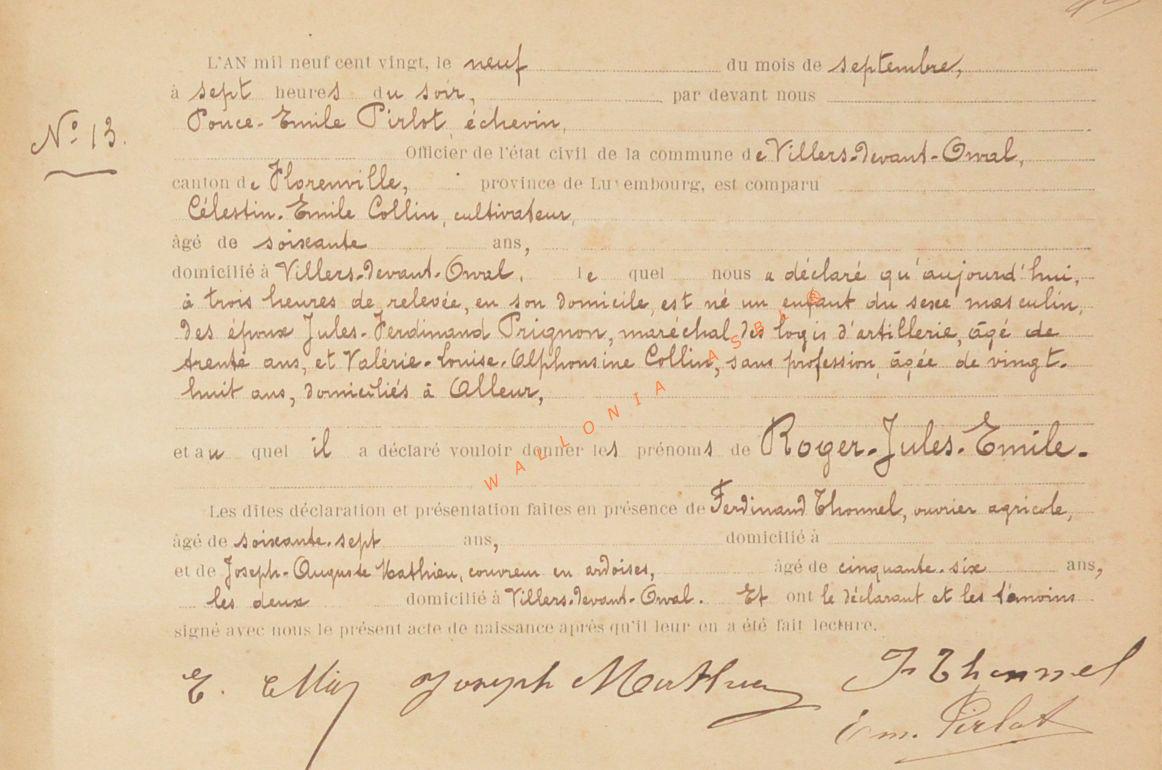 L'AN mil neuf cent vingt, le neuf du mois de septembre,
à sept heures du soir, par devant nous
Ponce-Emile Pirlot, échevin,
Nº 13.
Officier de l'état civil de la commune de Villers-devant-Orval,
canton de Florenville, province de Luxembourg, est comparu
Célestin-Emile Collin, cultivateur,
âgé de soixante ans,
domicilié à Villers-devant-Orval, le quel nous a déclaré qu'aujourd'hui,
à trois heures de relevée, en son domicile, est né un enfant du sexe masculin,
des époux Jules-Ferdinand Prignon, maréchal des logis d'artillerie, âgé de
trente ans, et Valérie-Louise-Alphonsine Collin, sans profession, âgée de vingt-
huit ans, domiciliés à Alleur,
et au quel il a déclaré vouloir donner les prénoms de Roger-Jules-Emile.
WALLONIA ASBL ©
Les dites déclaration et présentation faites en présence de Ferdinand Thonnel, ouvrier agricole,
âgé de soixante-sept ans, domicilié à
et de Joseph-Auguste Mathieu, couvreur en ardoises, âgé de cinquante-six ans,
les deux domicilié à Villers-devant-Orval. Et ont le déclarant et les témoins
signé avec nous le présent acte de naissance après qu'il leur en a été fait lecture.
E. Joseph Mathieu F Thonnel
Em. Pirlot